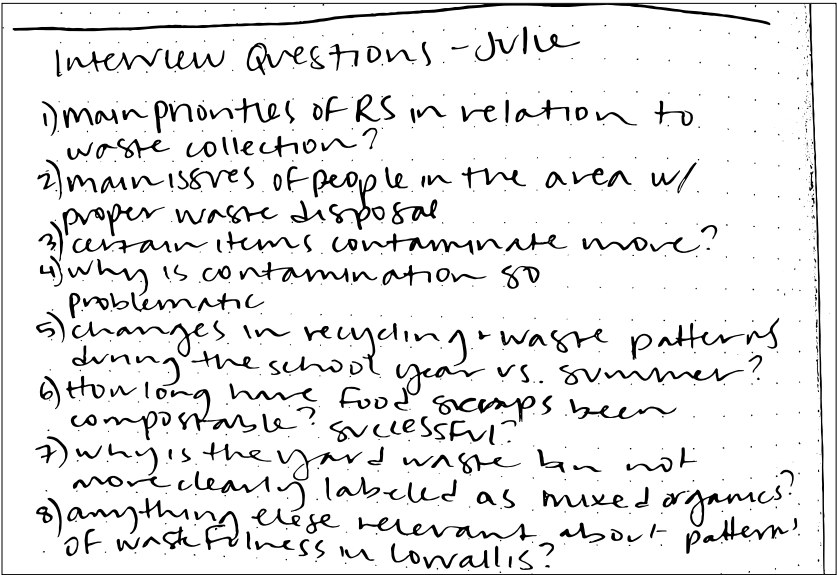 Interview Questions - Julie
1) main priorities of RS in relation to
waste collection?
2) main issues of people in the area w/
proper waste disposal
3) certain items contaminate more?
4) why is contamination so
problematic
5) changes in recycling + waste patterns
during the school year vs. summer?
6) How long have food scraps been
compostable? successful?
7) why is the yard waste bin not
more clearly labeled as mixed organics?
8) anything elese relevant about patterns
of wastefulness in Corvallis?